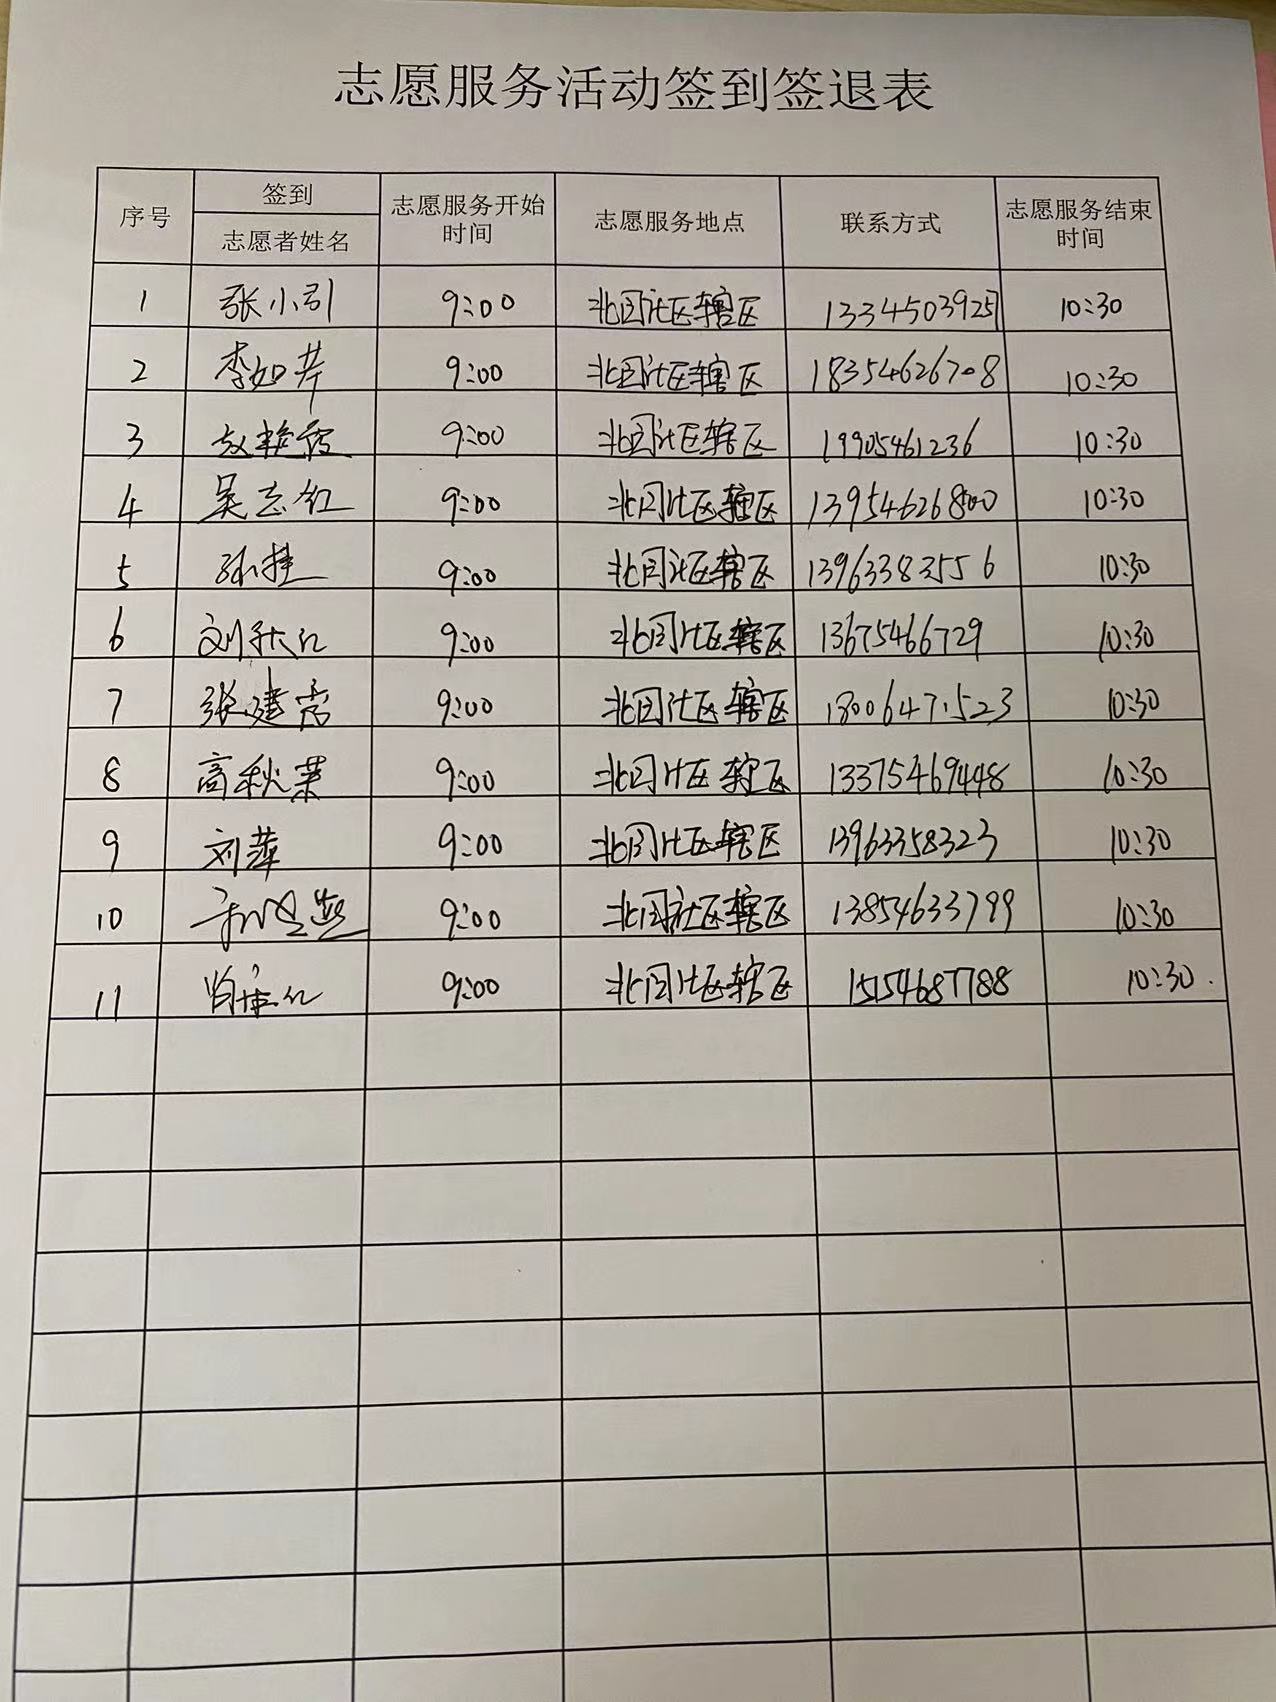 志愿服务活动签到签退表
序号 签到 志愿者姓名 志愿服务开始时间 志愿服务地点 联系方式 志愿服务结束时间
1 张小引 9:00 北园社区辖区 13345039257 10:30
2 李如芹 9:00 北园社区辖区 18354626708 10:30
3 赵艳霞 9:00 北园社区辖区 19905461236 10:30
4 吴志红 9:00 北园社区辖区 13954626800 10:30
5 9:00 北园社区辖区 13963383556 10:30
6 刘秋红 9:00 北园社区辖区 13675466729 10:30
7 张建 9:00 北园社区辖区 18006471523 10:30
8 高秋菊 9:00 北园社区辖区 13375469448 10:30
9 刘萍 9:00 北园社区辖区 13963358323 10:30
10 9:00 北园社区辖区 13854633799 10:30
11 9:00 北园社区辖区 15154687788 10:30